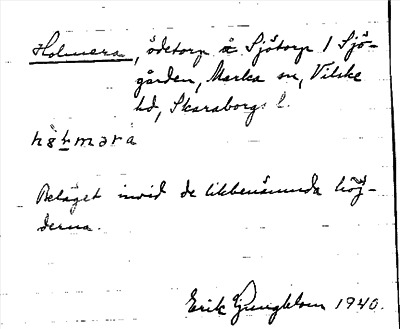 Holmera, ödetorp å Sjötorp / Sjö-
gården, Marka sn, Vilske
hd, Skaraborgs l.
Beläget invid de likbenämnda höj-
derna.
Erik Ljungblom 1940.